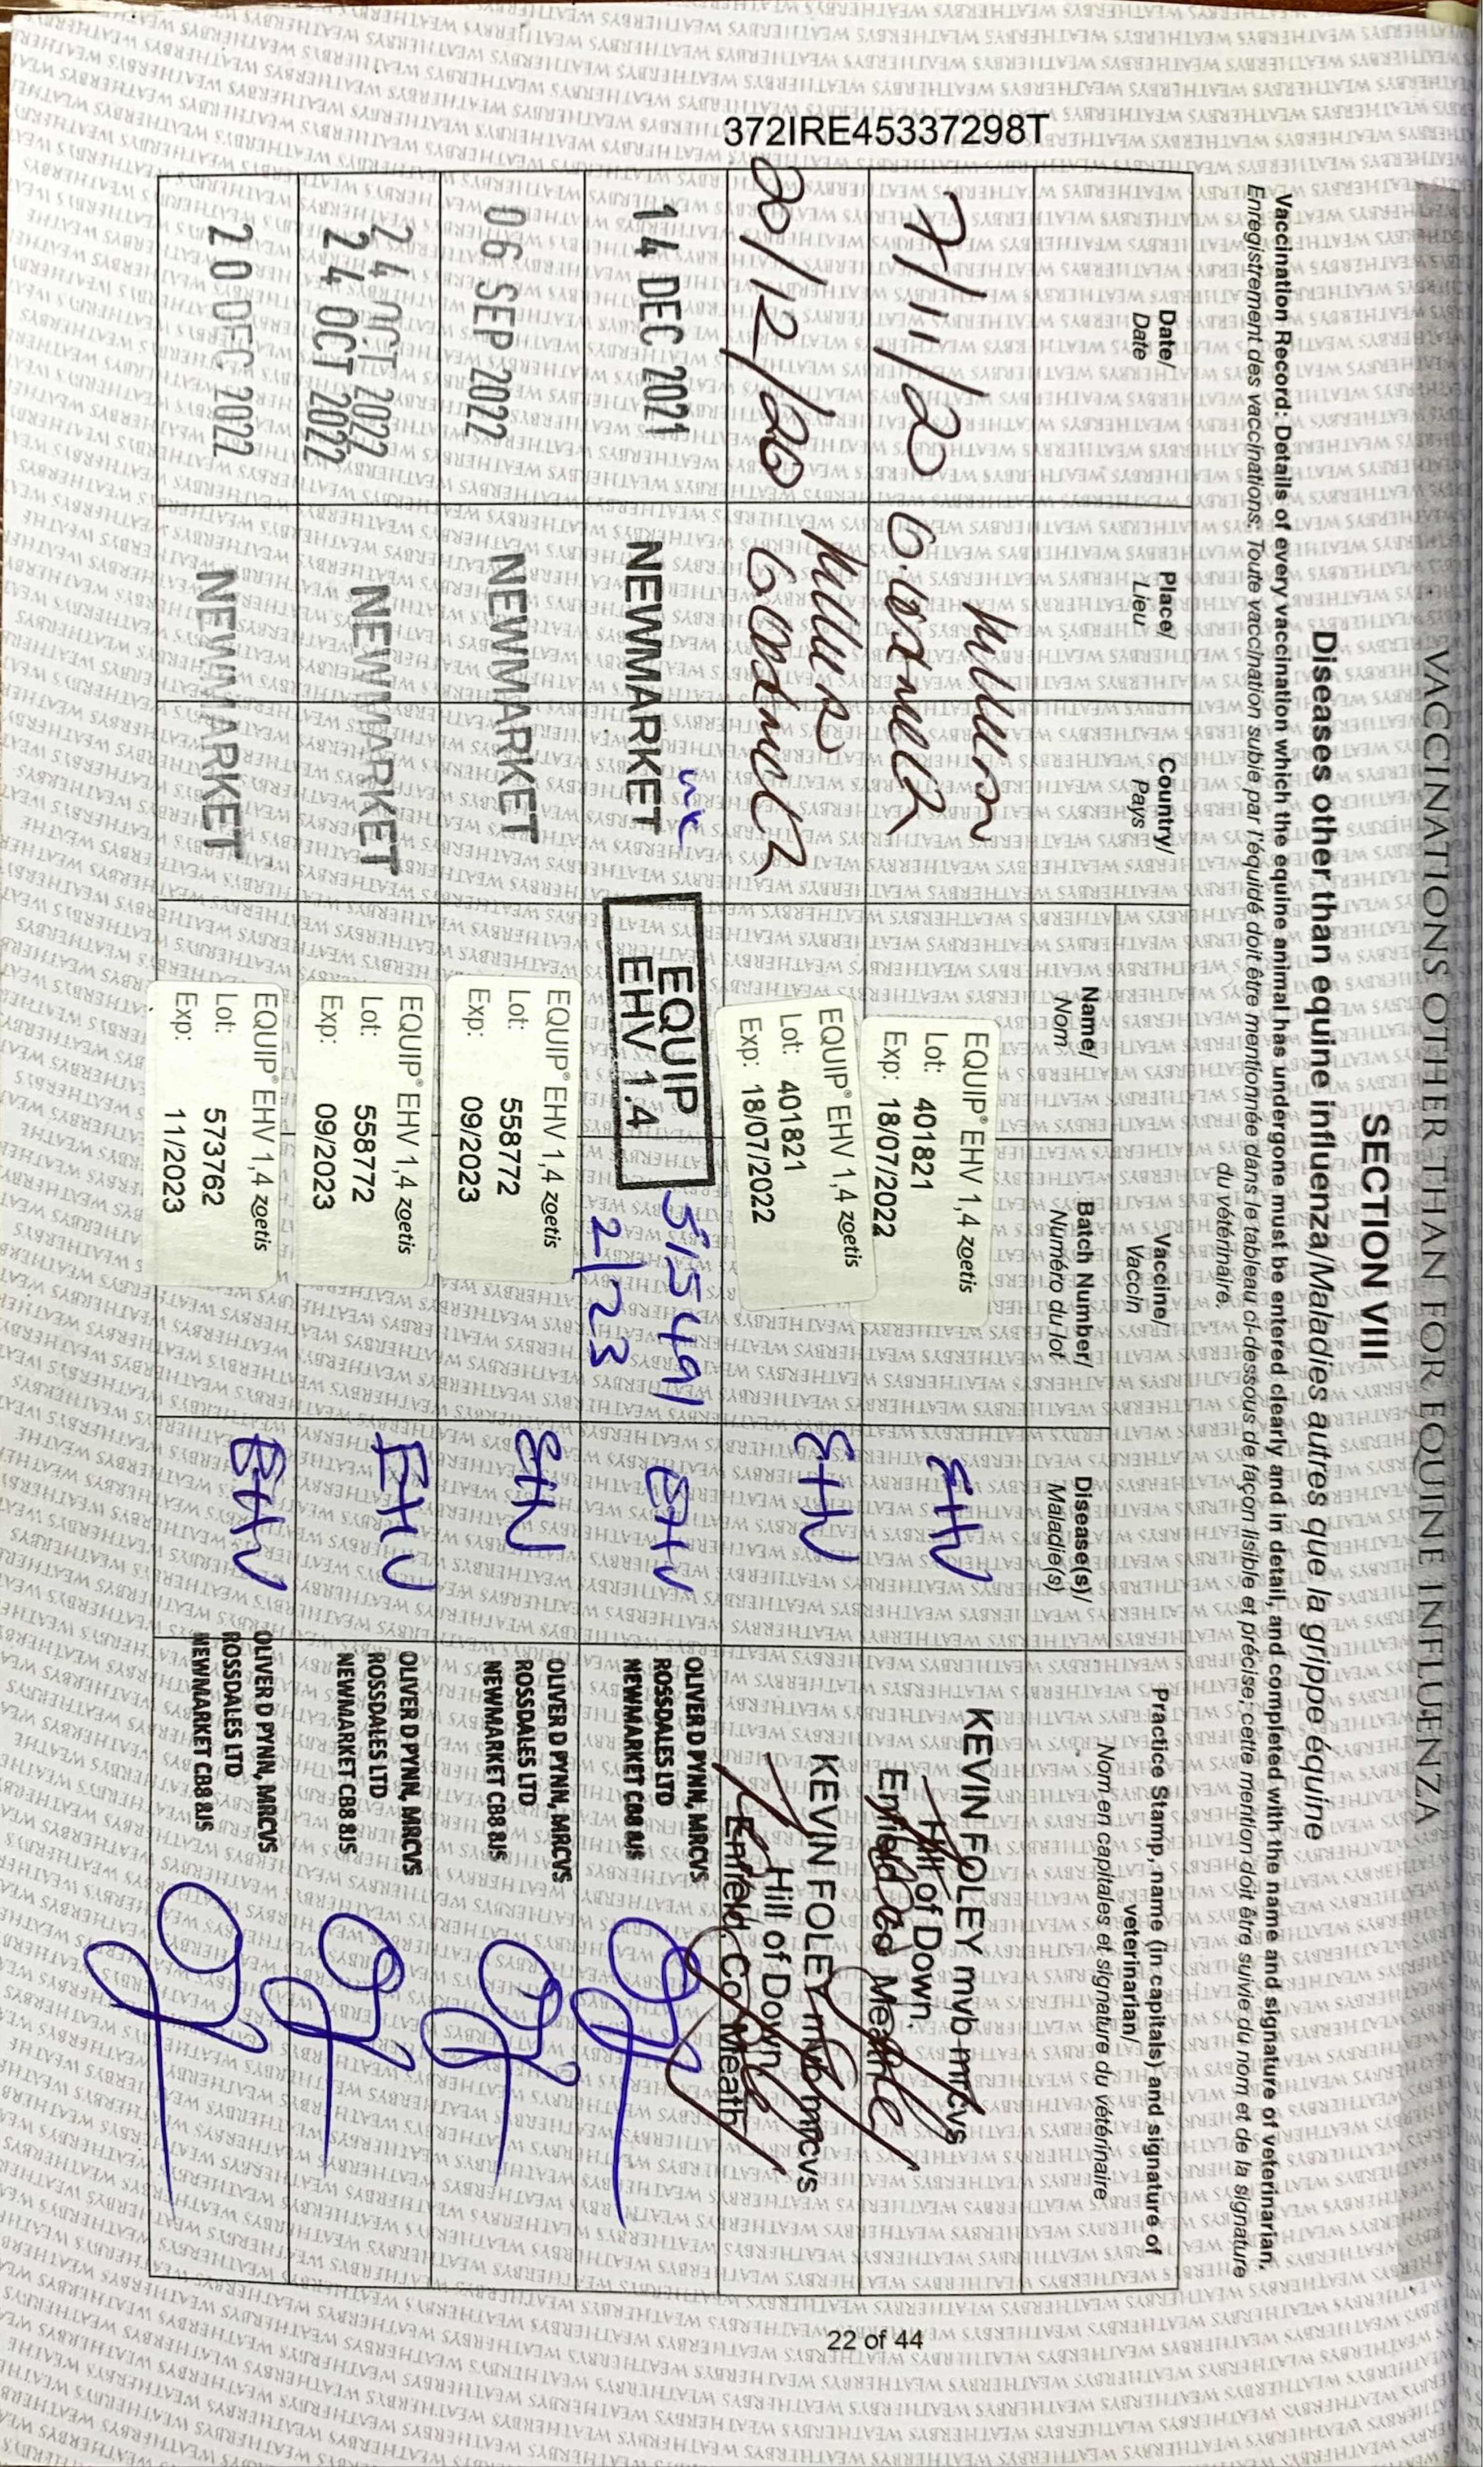 VACCINATIONS OTHER THAN FOR EQUINE INFLUENZA
SECTION VIII
Diseases other than equine influenza/Maladies autres que la grippe équine
Vaccination Record: Details of every vaccination which the equine animal has undergone must be entered clearly and in detail, and completed with the name and signature of veterinarian.
Enregistrement des vaccinations: Toute vaccination subie par l'équidé doit être mentionnée dans le tableau ci-dessous de façon lisible et précise; cette mention doit être suivie du nom et de la signature
du vétérinaire.
Date/
Date
Place/
Lieu
Country/
Pays
Vaccine/
Vaccin
Name/
Nom
Batch Number/
Numéro du lot
Disease(s)/
Maladie(s)
Practice Stamp, name (in capitals) and signature of
veterinarian/
Nom en capitales et signature du vétérinaire
7/11/20
EQUIP® EHV 1,4 zoetis
Lot: 401821
Exp: 18/07/2022
EHV
KEVIN FOLEY mvb mrcvs
Hill of Down.
Enfield Co Meath
/12/20
EQUIP® EHV 1,4 zoetis
Lot: 401821
Exp: 18/07/2022
EHV
KEVIN FOLEY mvb mrcvs
Hill of Down
Enfield, Co Meath
14 DEC 2021
NEWMARKET
UK
EQUIP
EHV 1.4
515491
2/23
EHV
OLIVER D PYNN, MRCVS
ROSSDALES LTD
NEWMARKET CB8 8JS
06 SEP 2022
NEWMARKET
EQUIP® EHV 1,4 zoetis
Lot: 558772
Exp: 09/2023
EHV
OLIVER D PYNN, MRCVS
ROSSDALES LTD
NEWMARKET CB8 8JS
24 OCT 2022
24 OCT 2022
NEWMARKET
EQUIP® EHV 1,4 zoetis
Lot: 558772
Exp: 09/2023
EHV
OLIVER D PYNN, MRCVS
ROSSDALES LTD
NEWMARKET CB8 8JS
20 DEC 2022
NEWMARKET
EQUIP® EHV 1,4 zoetis
Lot: 573762
Exp: 11/2023
EHV
OLIVER D PYNN, MRCVS
ROSSDALES LTD
NEWMARKET CB8 8JS
372IRE45337298T
22 of 44